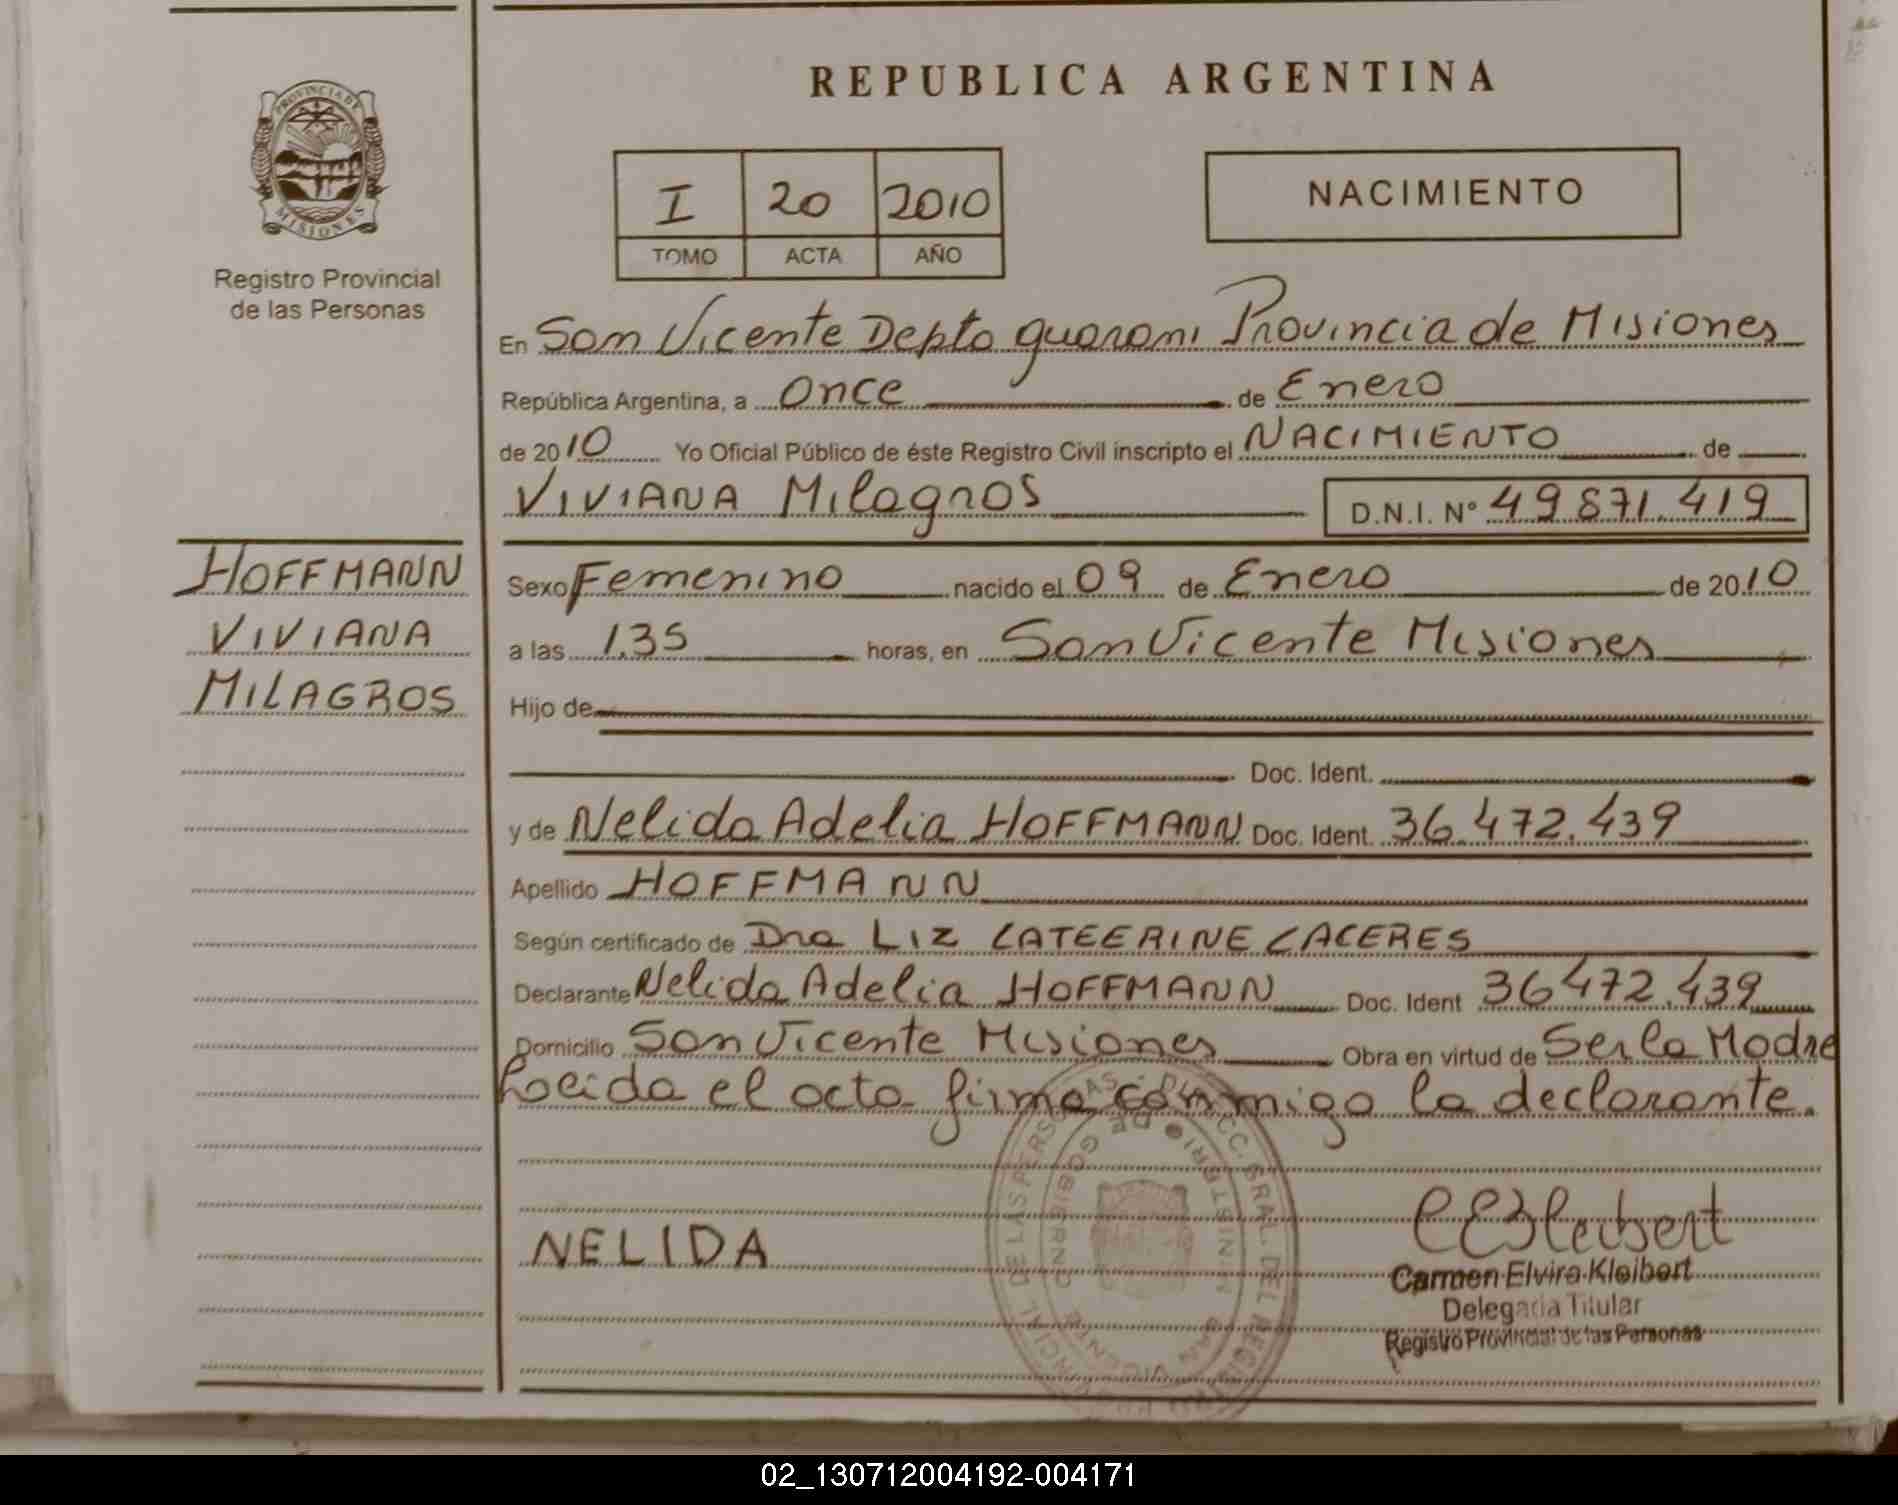 REPUBLICA ARGENTINA
PROVINCIA DE MISIONES
Registro Provincial
de las Personas
I 20 2010
TOMO ACTA AÑO
NACIMIENTO
En San Vicente Depto guarani Provincia de Misiones
República Argentina, a Once de Enero
de 2010 Yo Oficial Público de éste Registro Civil inscripto el NACIMIENTO de
VIVIANA Milagros D.N.I. N° 49871.419
HOFFMANN
VIVIANA
MILAGROS
Sexo Femenino nacido el 09 de Enero de 2010
a las 1.35 horas, en San Vicente Misiones
Hijo de
Doc. Ident.
y de Nelida Adelia HOFFMANN Doc. Ident. 36.472.439
Apellido HOFFMANN
Según certificado de Dra LIZ CATEERINE CACERES
Declarante Nelida Adelia HOFFMANN Doc. Ident 36472.439
Domicilio San Vicente Misiones Obra en virtud de Ser la Madre
Leida el acta firma conmigo la declarante.
NELIDA
CEKleibert
Carmen Elvira Kleibert
Delegada Titular
Registro Provincial de las Personas
02_130712004192-004171